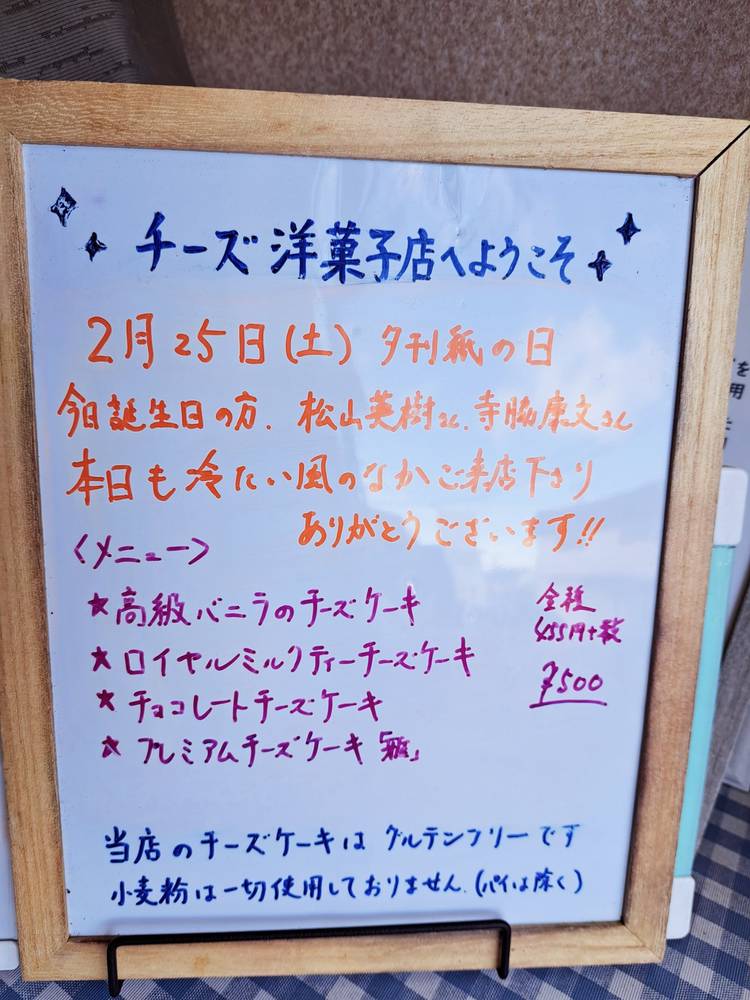 チーズ洋菓子店へようこそ
2月25日(土) 夕刊紙の日
今日誕生日の方、松山英樹さん、寺脇康文さん
本日も冷たい風のなかご来店下さり
ありがとうございます!!
〈メニュー〉
★高級バニラのチーズケーキ
★ロイヤルミルクティーチーズケーキ
★チョコレートチーズケーキ
★プレミアムチーズケーキ「雅」
全種
455円+税
¥500
当店のチーズケーキはグルテンフリーです
小麦粉は一切使用しておりません。(パイは除く)